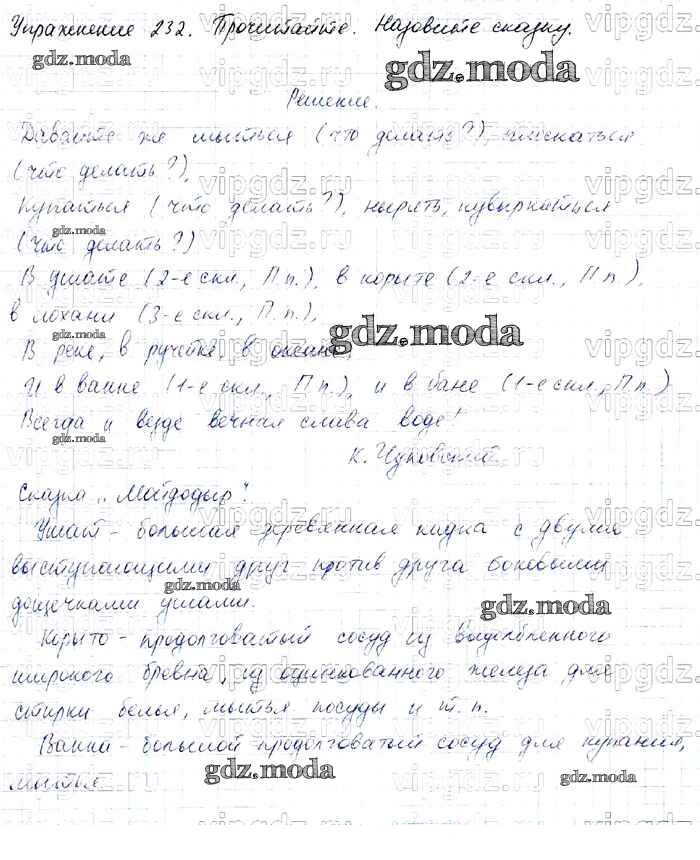 Упражнение 232. Прочитайте. Назовите сказку.
gdz.moda
gdz.moda
Решение.
Давайте же мыться (что делать?), плескаться
(что делать?),
Купаться (что делать?), нырять, кувыркаться
gdz.moda
(что делать?)
В ушате (2-е скл., П.п.), в корыте (2-е скл., П.п.),
в лохани (3-е скл., П.п.),
gdz.moda
gdz.moda
В реке, в ручейке, в океане,
И в ванне (1-е скл., П.п.), и в бане (1-е скл., П.п.)
Всегда и везде вечная слава воде!
gdz.moda
К. Чуковский
Сказка „Мойдодыр".
Ушат - большая деревянная кадка с двумя
выступающими друг против друга боковыми
gdz.moda
дощечками ушами.
gdz.moda
Корыто - продолговатый сосуд из выдолбленного
широкого бревна, из оцинкованного железа для
стирки белья, мытья посуды и т. п.
Ванна - большой продолговатый сосуд для купания,
мытья
gdz.moda
gdz.moda
vipgdz.ru